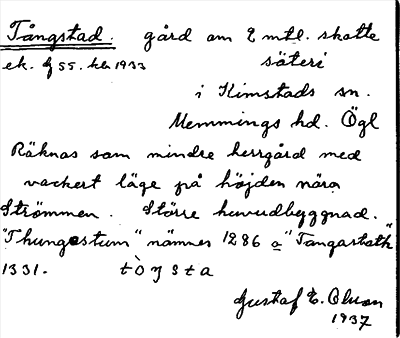 Tångstad. gård om 2 mtl. skatte
ek. bl 55. her 1933 säteri
i Kimstads sn.
Memmings hd. Ögl
Räknas som mindre herrgård med
vackert läge på höjden nära
Strömmen. Större huvudbyggnad.
"Thungastum" nämnes 1286 o "Tangastath"
1331. tòŋsta
Gustaf E. Olsson
1937